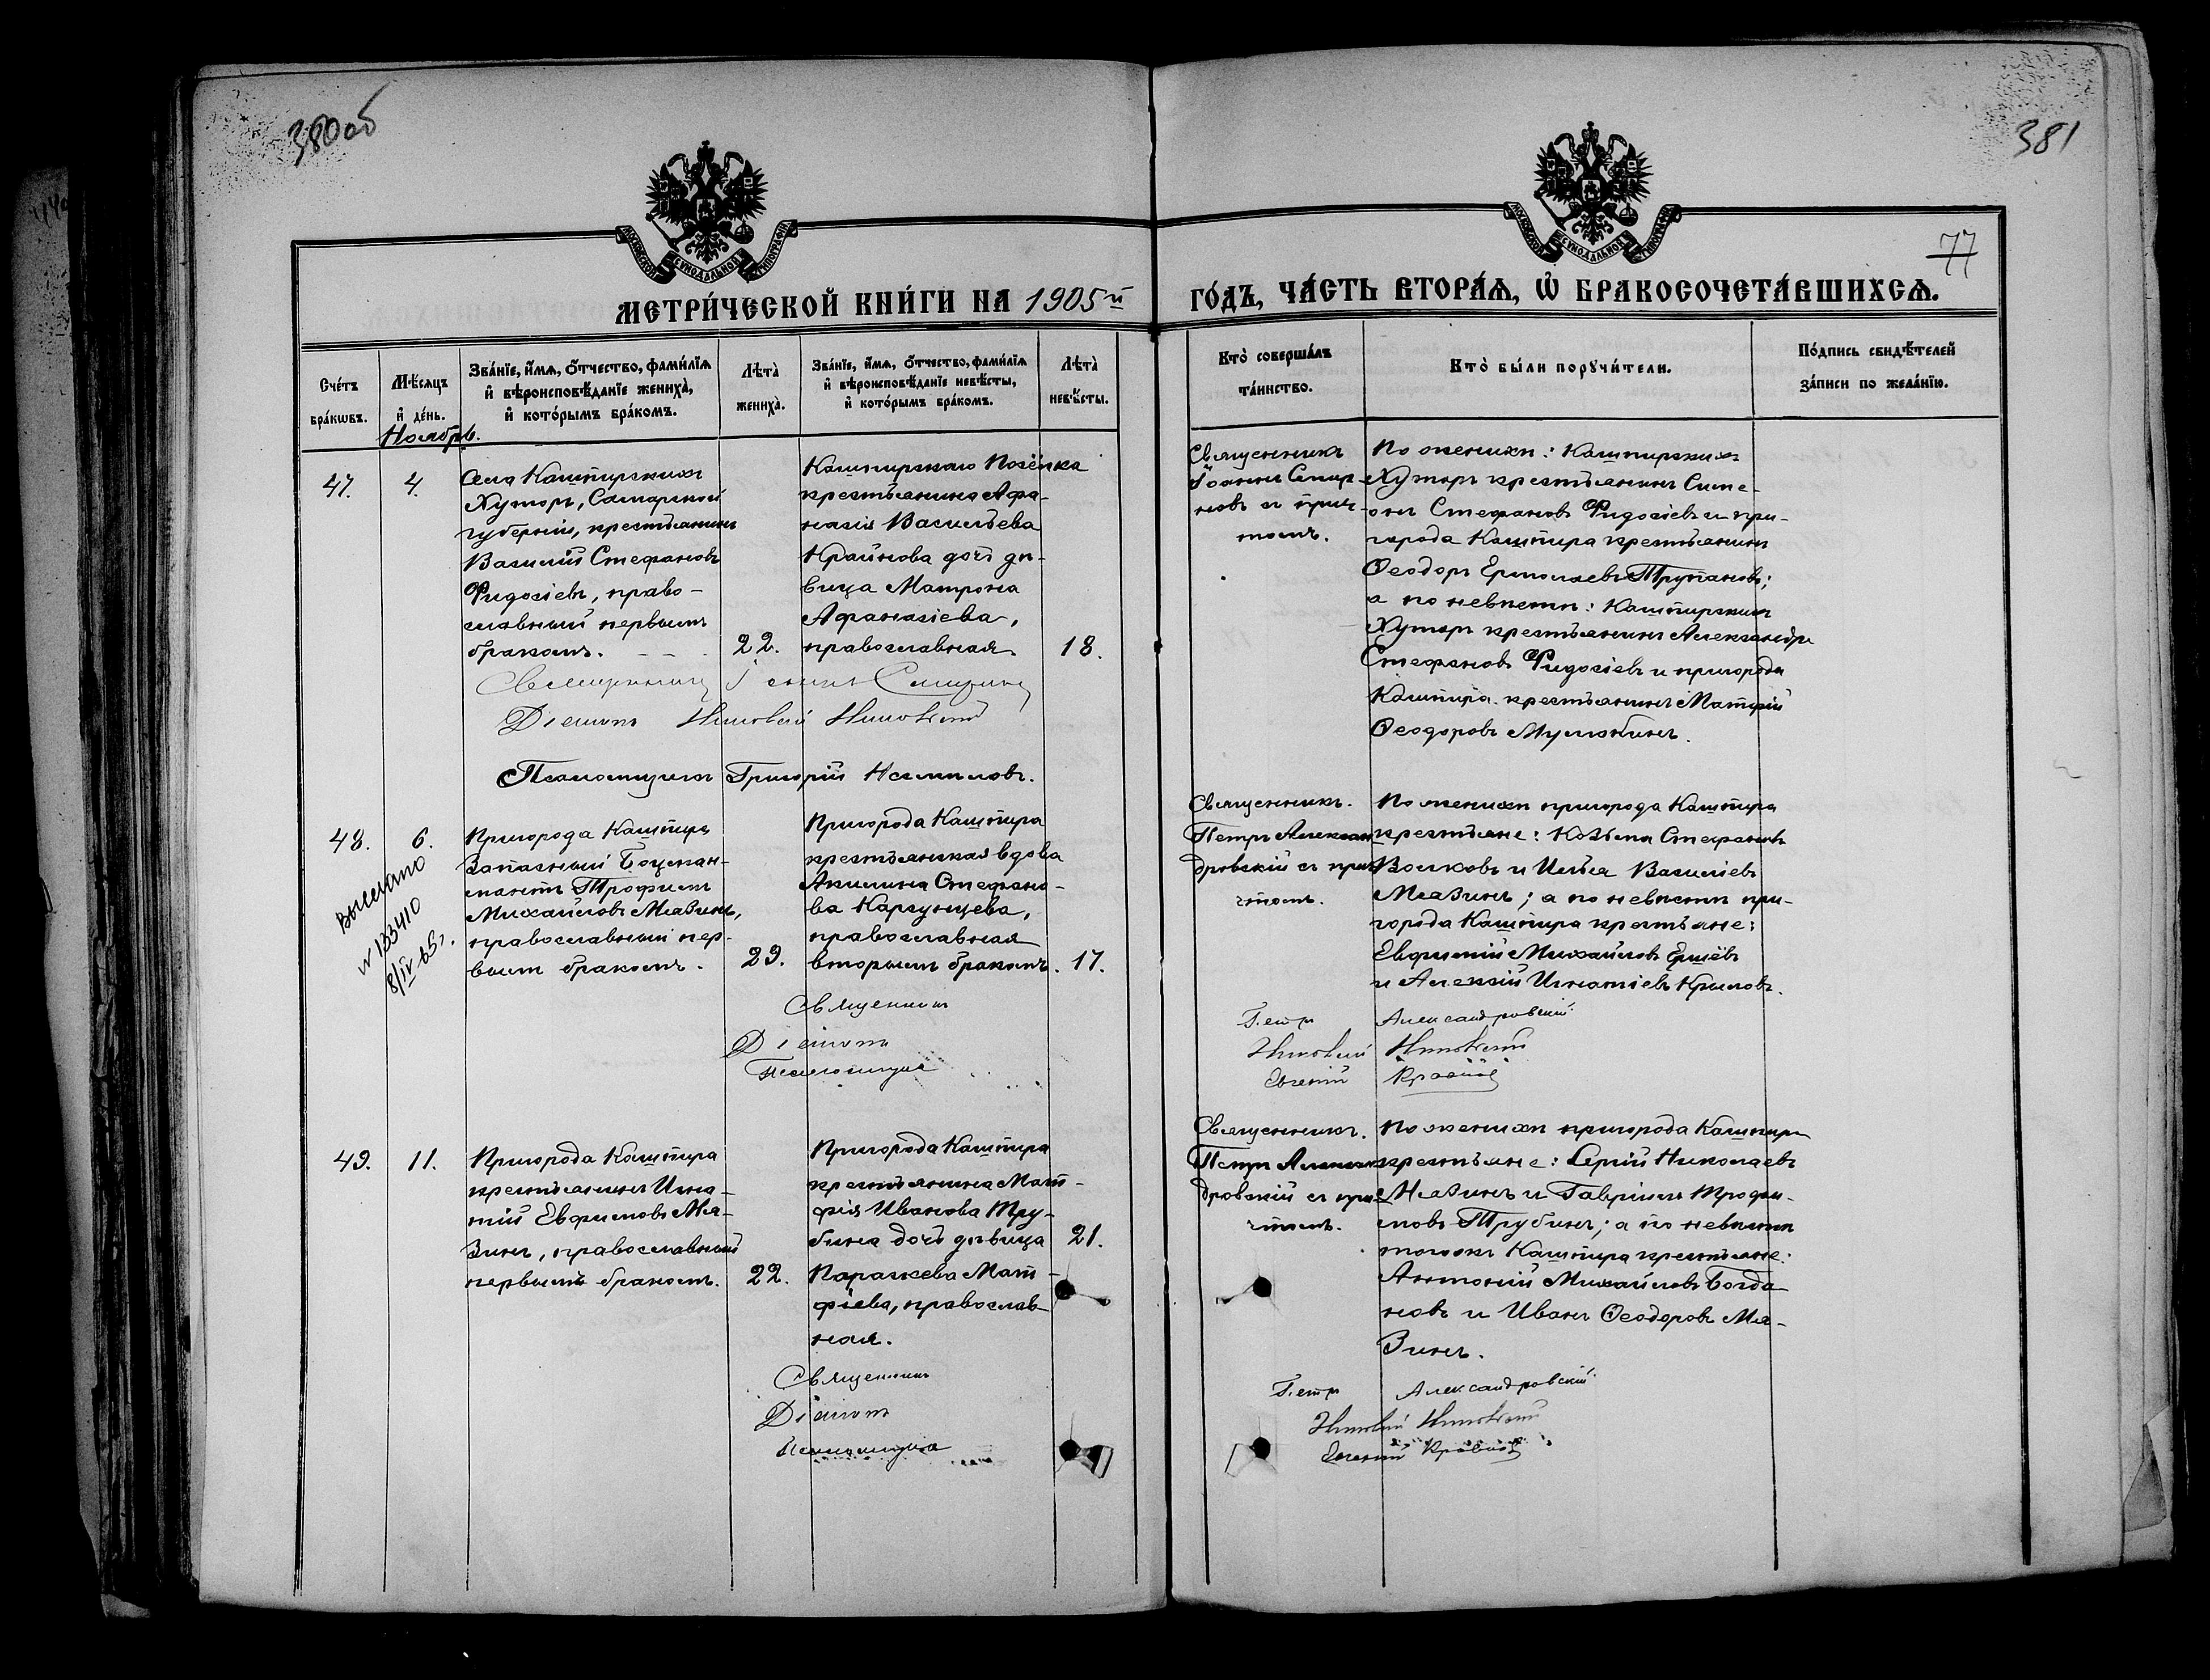 380об
381
77
МЕТРИ́ЧЕСКОЙ КНИ́ГИ НА 1905й
ГО́ДЪ, ЧА́СТЬ ВТОРА́Я, Ѽ БРАКОСОЧЕТА́ВШИХСЯ.
Сче́тъ бра́кѡвъ.
Мѣ́сяцъ и҆ де́нь.
Зва́нїе, и҆́мя, ѻ҆́тчество, фами́лїя
и҆ вѣроисповѣ́данїе жениха̀,
и҆ кото́рымъ бра́комъ.
Лѣта̀ жениха̀.
Зва́нїе, и҆́мя, ѻ҆́тчество, фами́лїя
и҆ вѣроисповѣ́данїе невѣ́сты,
и҆ кото́рымъ бра́комъ.
Лѣта̀ невѣ́сты.
Кто̀ соверша́лъ
та́инство.
Кто̀ бы́ли порꙋчи́тели.
По́дпись свидѣ́телей
за́писи по жела́нїю.
Ноябрь.
47.
4.
Села Кашпирскихъ
Хуторъ, Самарской
губерніи, крестьянинъ
Василій Стефановъ
Ѳидосіевъ, право-
славный первымъ
бракомъ.
22.
Кашпирскаго Посёлка
крестьянина Афа-
насія Васильева
Крайнова дочь дѣ-
вица Матрона
Афанасіева,
православная.
18.
Священникъ
Іоаннъ Смир-
новъ съ прич-
томъ.
По женихѣ: Кашпирскихъ
Хуторъ крестьянинъ Симе-
онъ Стефановъ Ѳидосіевъ и при-
города Кашпира крестьянинъ
Ѳеодоръ Ермолаевъ Трупановъ;
а по невѣстѣ: Кашпирскихъ
Хуторъ крестьянинъ Александръ
Стефановъ Ѳидосіевъ и пригорода
Кашпира крестьянинъ Матфій
Ѳеодоровъ Мулюкинъ.
Священникъ Іоаннъ Смирновъ
Діаконъ
Псаломщикъ Григорій
48.
6.
выслано
N 133410
8/IV 65г.
Пригорода Кашпира
Запасный Боцман-
матъ Трофимъ
Михайловъ Мязинъ,
православный пер-
вымъ бракомъ.
29.
Пригорода Кашпира
крестьянская вдова
Акилина Стефано-
ва Каргунцева,
православная
вторымъ бракомъ.
17.
Священникъ.
Петръ Алексан-
дровскій съ при-
чтомъ.
По женихѣ пригорода Кашпира
крестьяне: Козьма Стефановъ
Волковъ и Илья Василіевъ
Мязинъ; а по невѣстѣ при-
города Кашпира крестьяне:
Евфимій Михайловъ Ершёвъ
и Алексій Игнатіевъ Крыловъ.
Священникъ Петръ Александровскій
Діаконъ
Псаломщикъ Евгеній
49.
11.
Пригорода Кашпира
крестьянинъ Игна-
тій Евфимовъ Мя-
зинъ, православный
первымъ бракомъ.
22.
Пригорода Кашпира
крестьянина Мат-
фія Иванова Тру-
бина дочь дѣвица
Параскева Мат-
фіева, православ-
ная.
21.
Священникъ.
Петръ Алексан-
дровскій съ при-
чтомъ.
По женихѣ пригорода Кашпира
крестьяне: Сергій Николаевъ
Мязинъ и Гавріилъ Трофи-
мовъ Трубинъ; а по невѣстѣ
того же Кашпира крестьяне:
Антоній Михайловъ Богда-
новъ и Иванъ Ѳеодоровъ Мя-
зинъ.
Священникъ Петръ Александровскій
Діаконъ
Псаломщикъ Евгеній